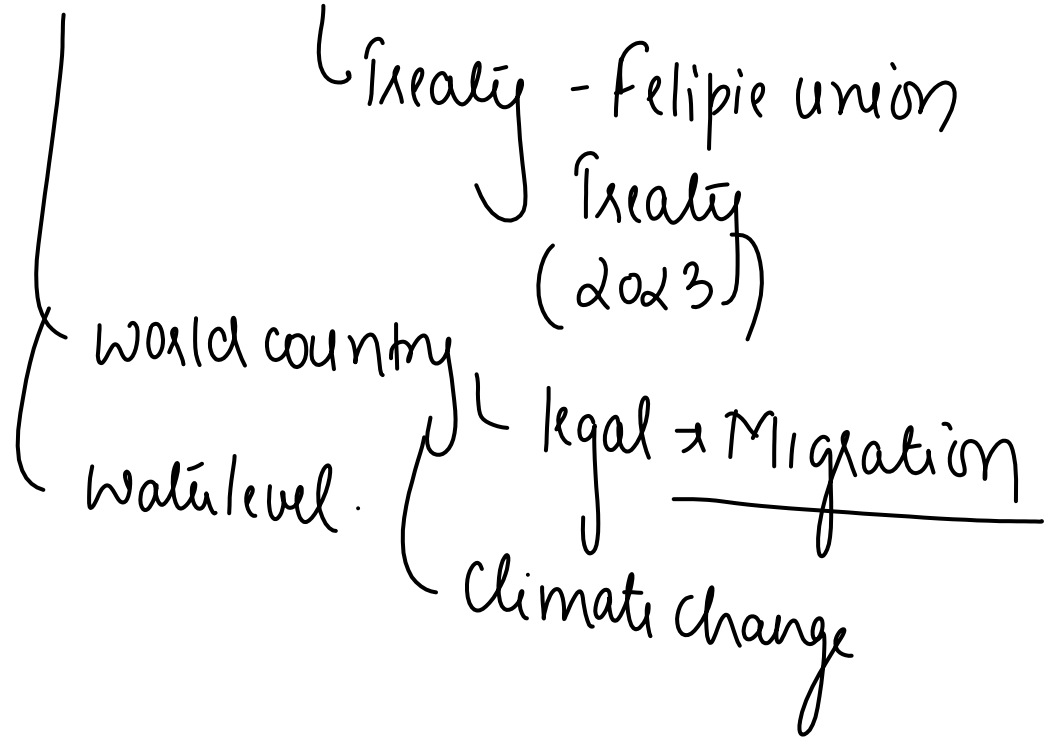 Treaty - Felipie union
Treaty
(2023)
World country
legal → Migration
Water level.
Climate change